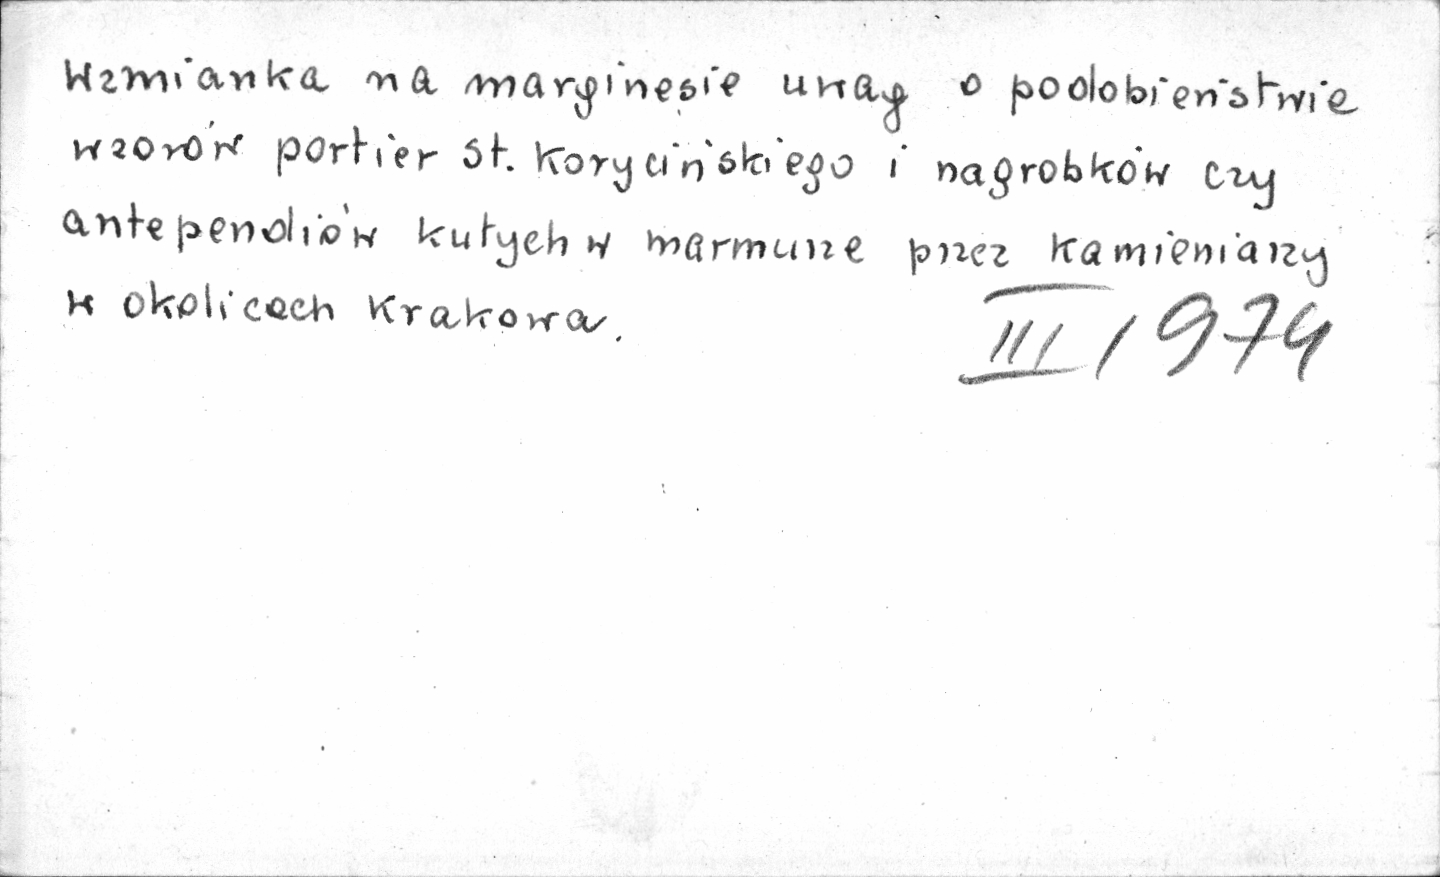 Wzmianka na marginesie uwag o podobieństwie
wzorów portier St. Korycińskiego i nagrobków czy
antependiów kutych w marmurze przez kamieniarzy
w okolicach Krakowa.
III/974